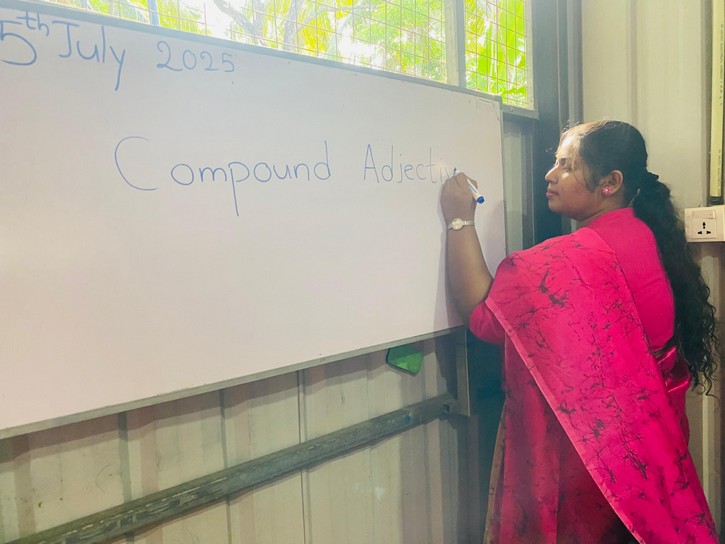 5th July 2025
Compound Adjectiv